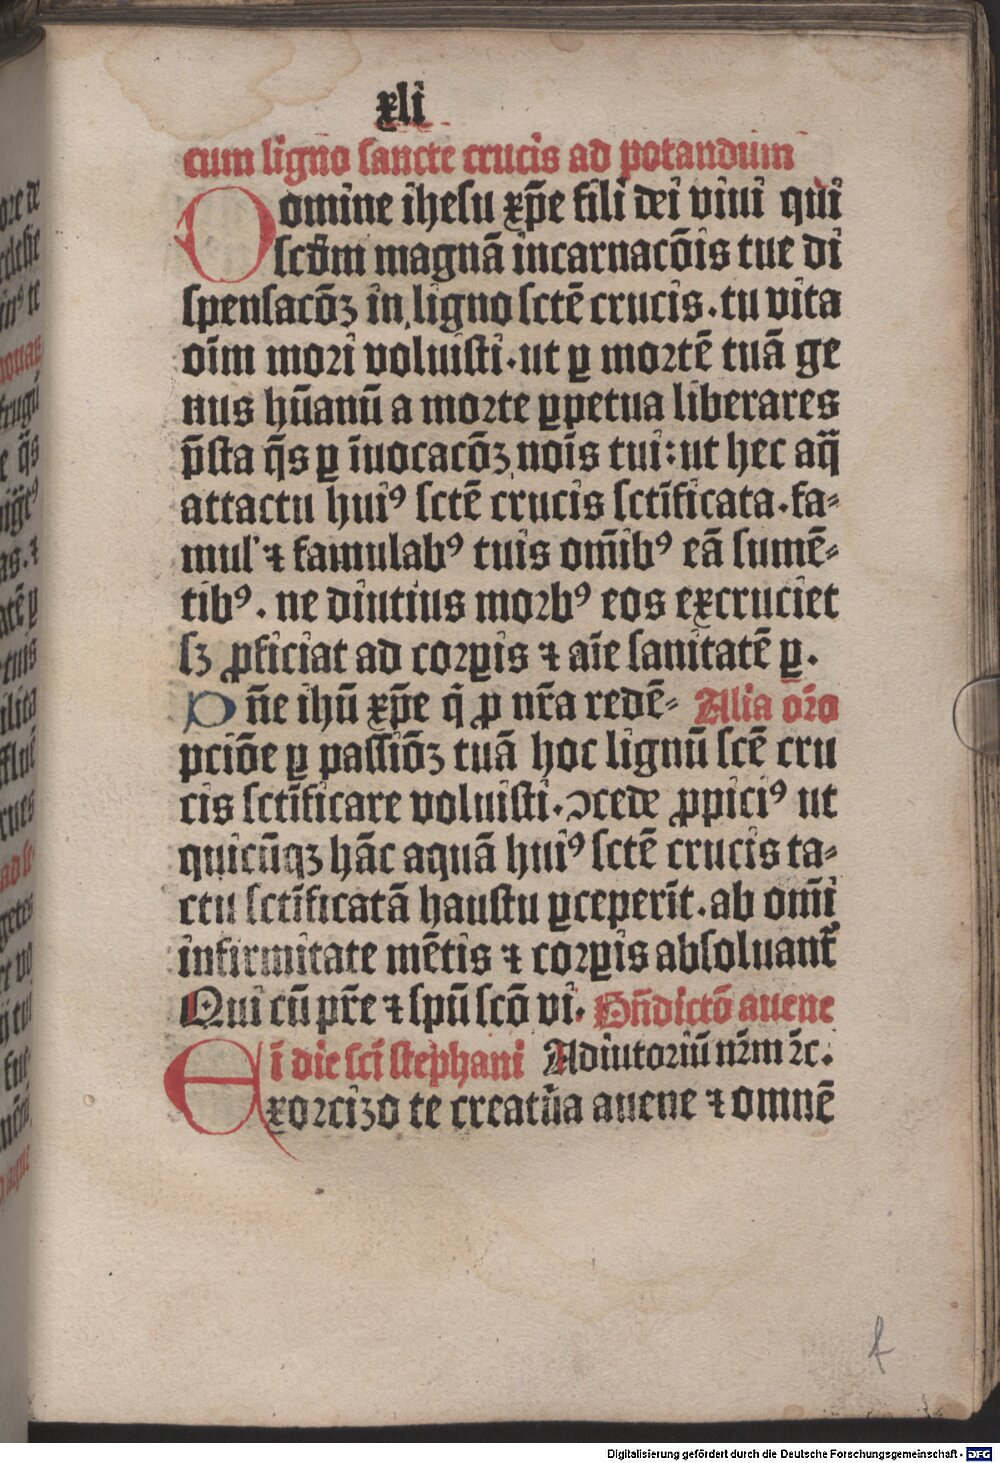 xli
cum ligno sancte crucis ad potandum
Domine ihesu xp̄e fili dei viui qui
scd̄m magnā incarnacōis tue di
spensacōꝫ in ligno sctē crucis · tu vita
oīm mori voluisti · ut ꝑ mortē tuā ge
nus hūanū a morte ꝑpetua liberares
p̄sta q̄s ꝑ īuocacōꝫ nōis tui : ut hec aq̄
attactu huiꝰ sctē crucis sctīficata · fa⸗
mul' ⁊ famulabꝰ tuis om̄ibꝰ eā sumē⸗
tibꝰ · ne diutius morbꝰ eos excruciet
sꝫ ꝓficiat ad corꝑis ⁊ aīe sanitatē ꝑ ·
Dn̄e ihū xp̄e q̄ ꝓ nr̄a redē⸗ Alia or̄o
pciōe ꝑ passiōꝫ tuā hoc lignū scē cru
cis sctīficare voluisti · ꝯcede ꝓpiciꝰ ut
quicūqꝫ hāc aquā huiꝰ sctē crucis ta⸗
ctu sctīficatā haustu ꝑceperīt · ab om̄i
infirmitate mētis ⁊ corꝑis absoluant᷑
Qui cū pr̄e ⁊ spū scō vi · Bn̄dictō auene
ī die scī stephani Adiutoriū nr̄m ⁊c̄ .
Exorcizo te creatūa auene ⁊ omnē
f
Digitalisierung gefördert durch die Deutsche Forschungsgemeinschaft - DFG